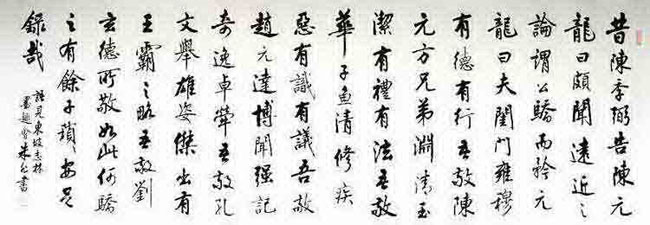 昔陳季弼告陳元
龍曰頗聞遠近之
論謂公驕而矜元
龍曰夫閨門雍穆
有德有行吾敬陳
元方兄弟淵清玉
潔有禮有法吾敬
華子魚清修疾
惡有識有議吾敬
趙元達博聞强記
奇逸卓犖吾敬孔
文舉雄姿傑出有
王霸之略吾敬劉
玄德所敬如此何驕
之有餘子瑣安足
錄哉
語見東坡志林
書